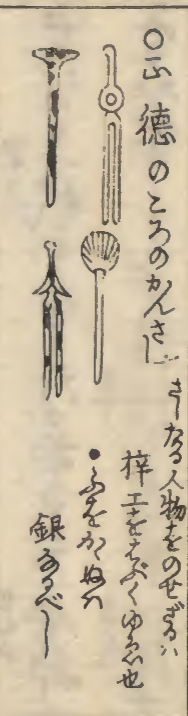 〇正徳のころのかんさし
さしたる人物をのせざるハ
梓工をはぶくゆゑ也
●ふをかゝぬハ
銀なるべし